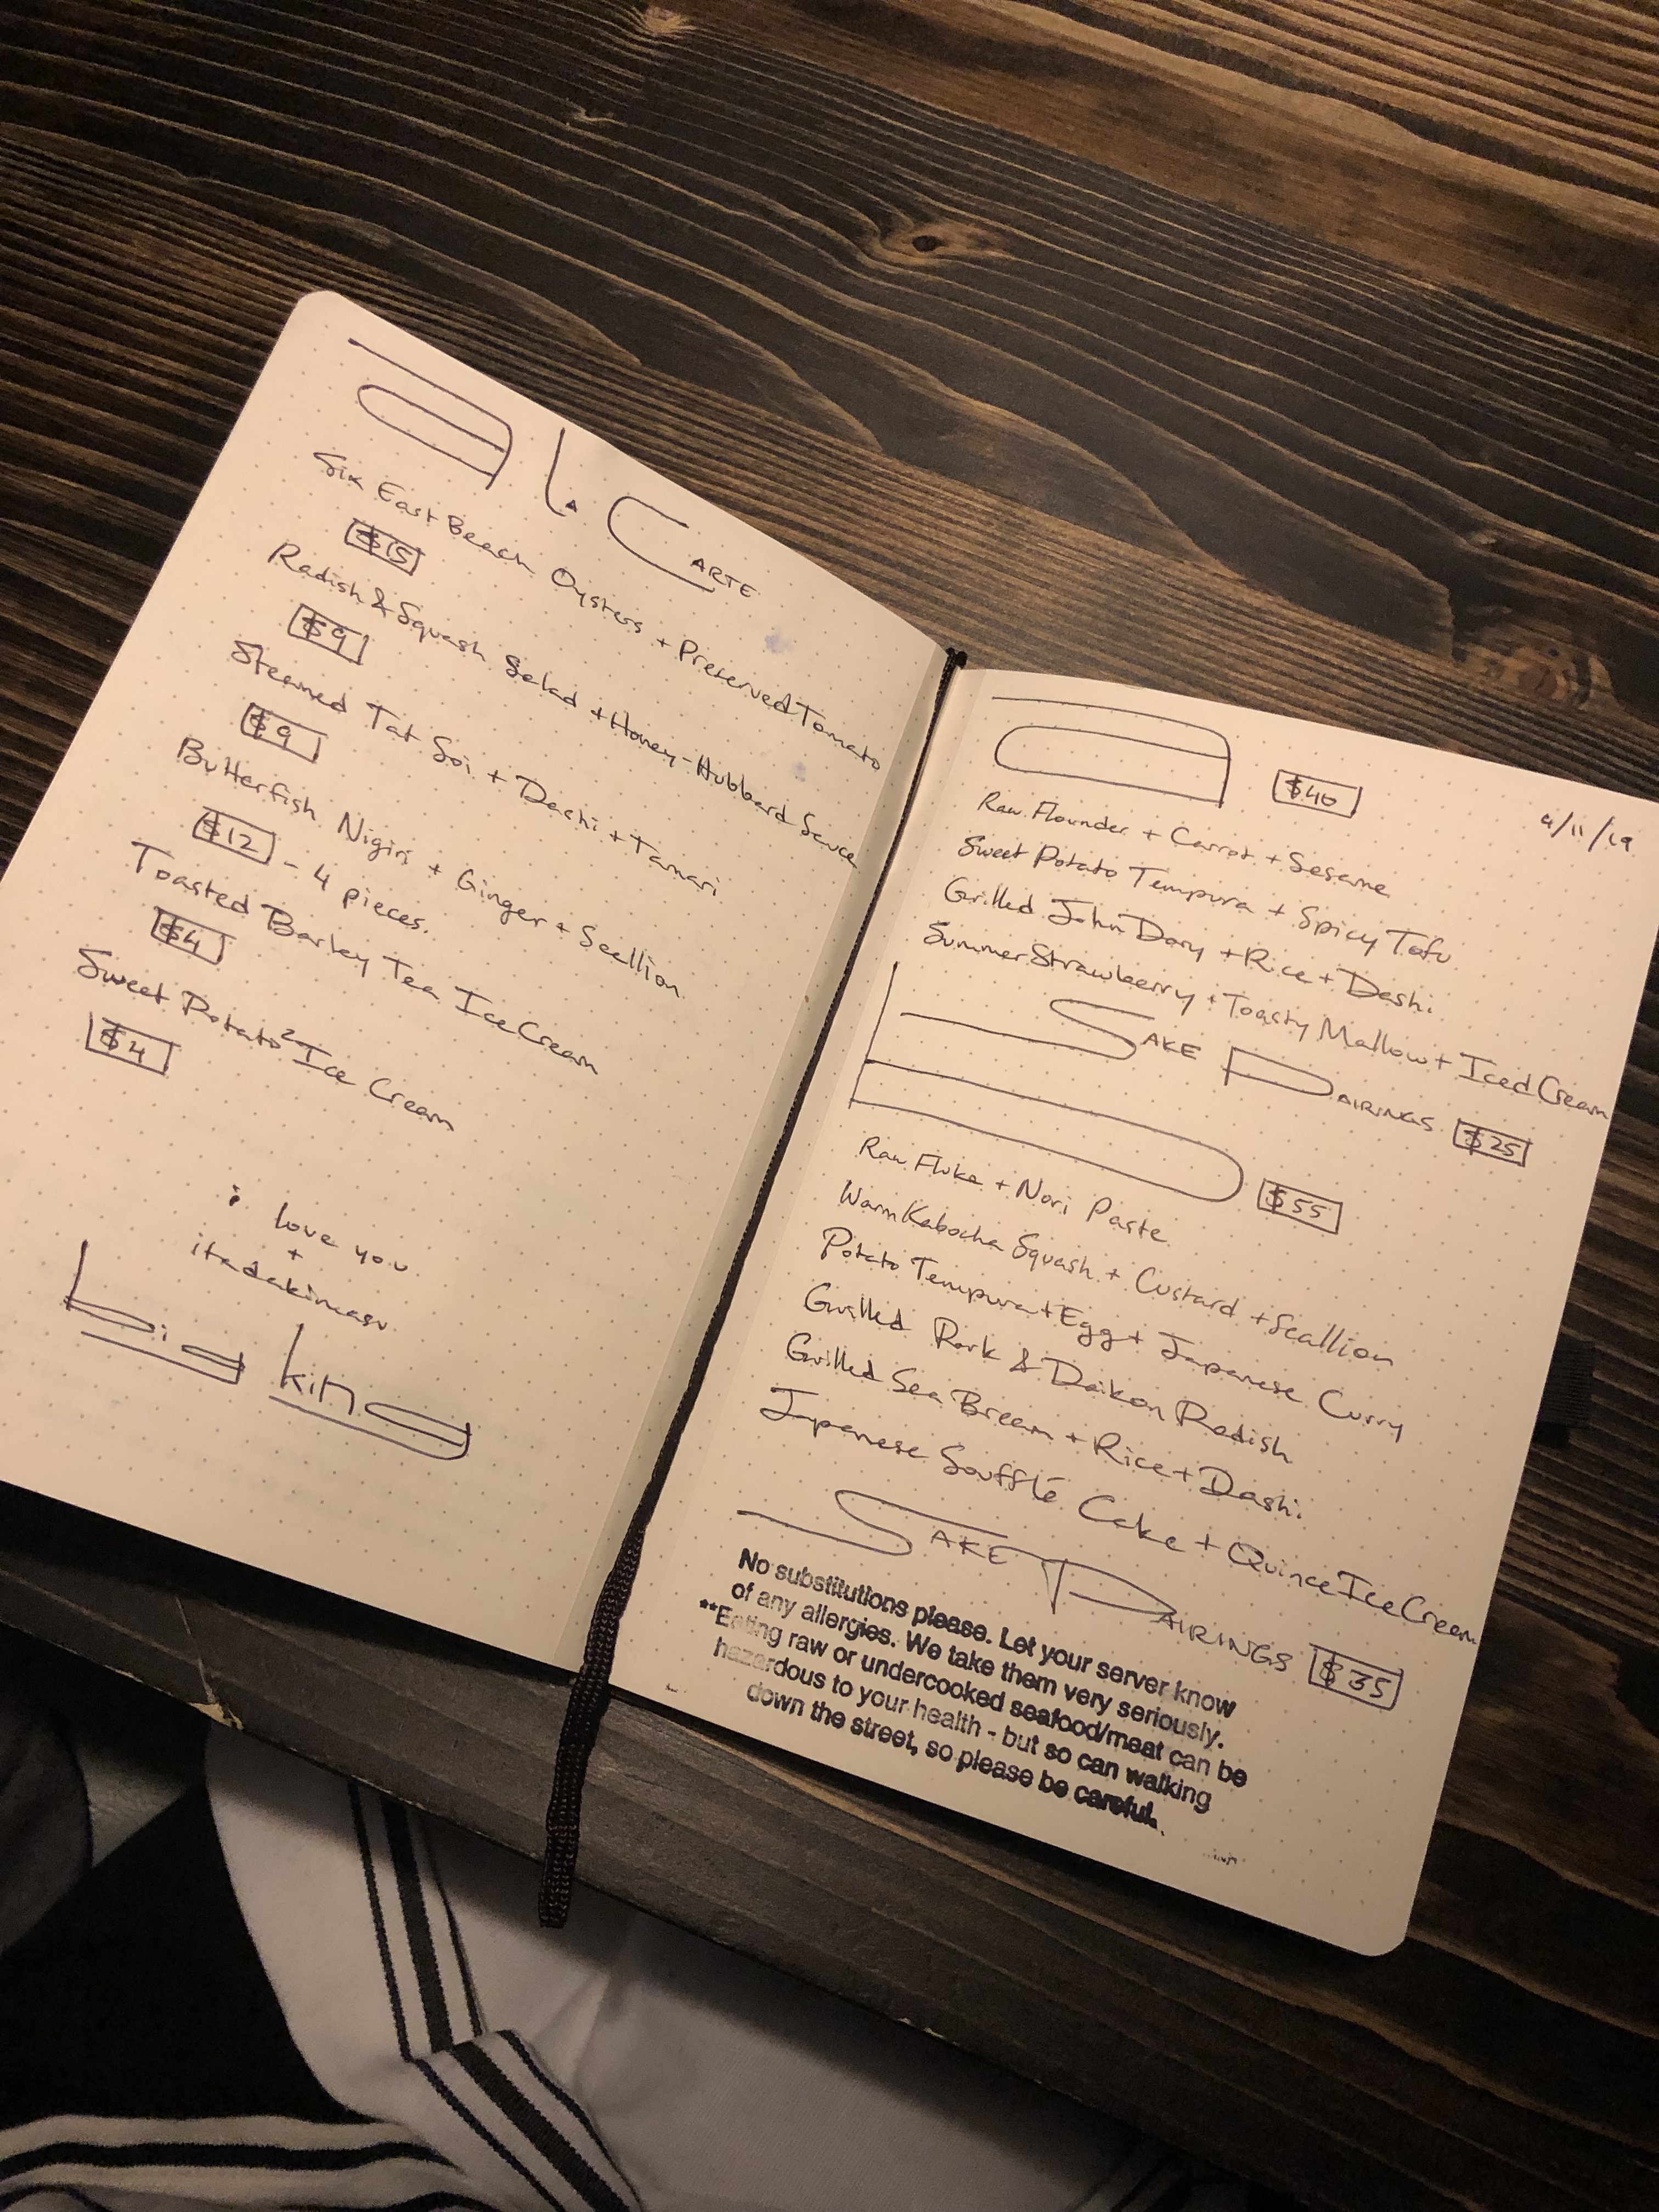 a La Carte
Six East Beach Oysters + Preserved Tomato
$15
Radish & Squash Salad + Honey-Hubbard Sauce
$9
Steamed Tat Soi + Dashi + Tamari
$9
Butterfish Nigiri + Ginger + Scallion
$12 - 4 pieces.
Toasted Barley Tea Ice Cream
$4
Sweet Potato² Ice Cream
$4
i love you
+
itadakimasu
big king
a $40
4/11/19
Raw Flounder + Carrot + Sesame
Sweet Potato Tempura + Spicy Tofu
Grilled John Dory + Rice + Dashi
Summer Strawberry + Toasty Mallow + Iced Cream
SAKE PAIRINGS $25
b $55
Raw Fluke + Nori Paste
Warm Kabocha Squash + Custard + Scallion
Potato Tempura + Egg + Japanese Curry
Grilled Pork & Daikon Radish
Grilled Sea Bream + Rice + Dashi
Japanese Soufflé Cake + Quince Ice Cream
SAKE PAIRINGS $35
No substitutions please. Let your server know
of any allergies. We take them very seriously.
**Eating raw or undercooked seafood/meat can be
hazardous to your health - but so can walking
down the street, so please be careful.